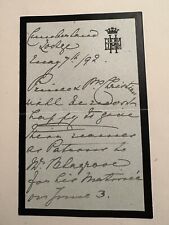 Cumberland
Lodge
May 7th/92.
Princess Christian
will be most
happy to give
her name
as Patroness to
Mr Belgrove
for his Matinée
on June 3.